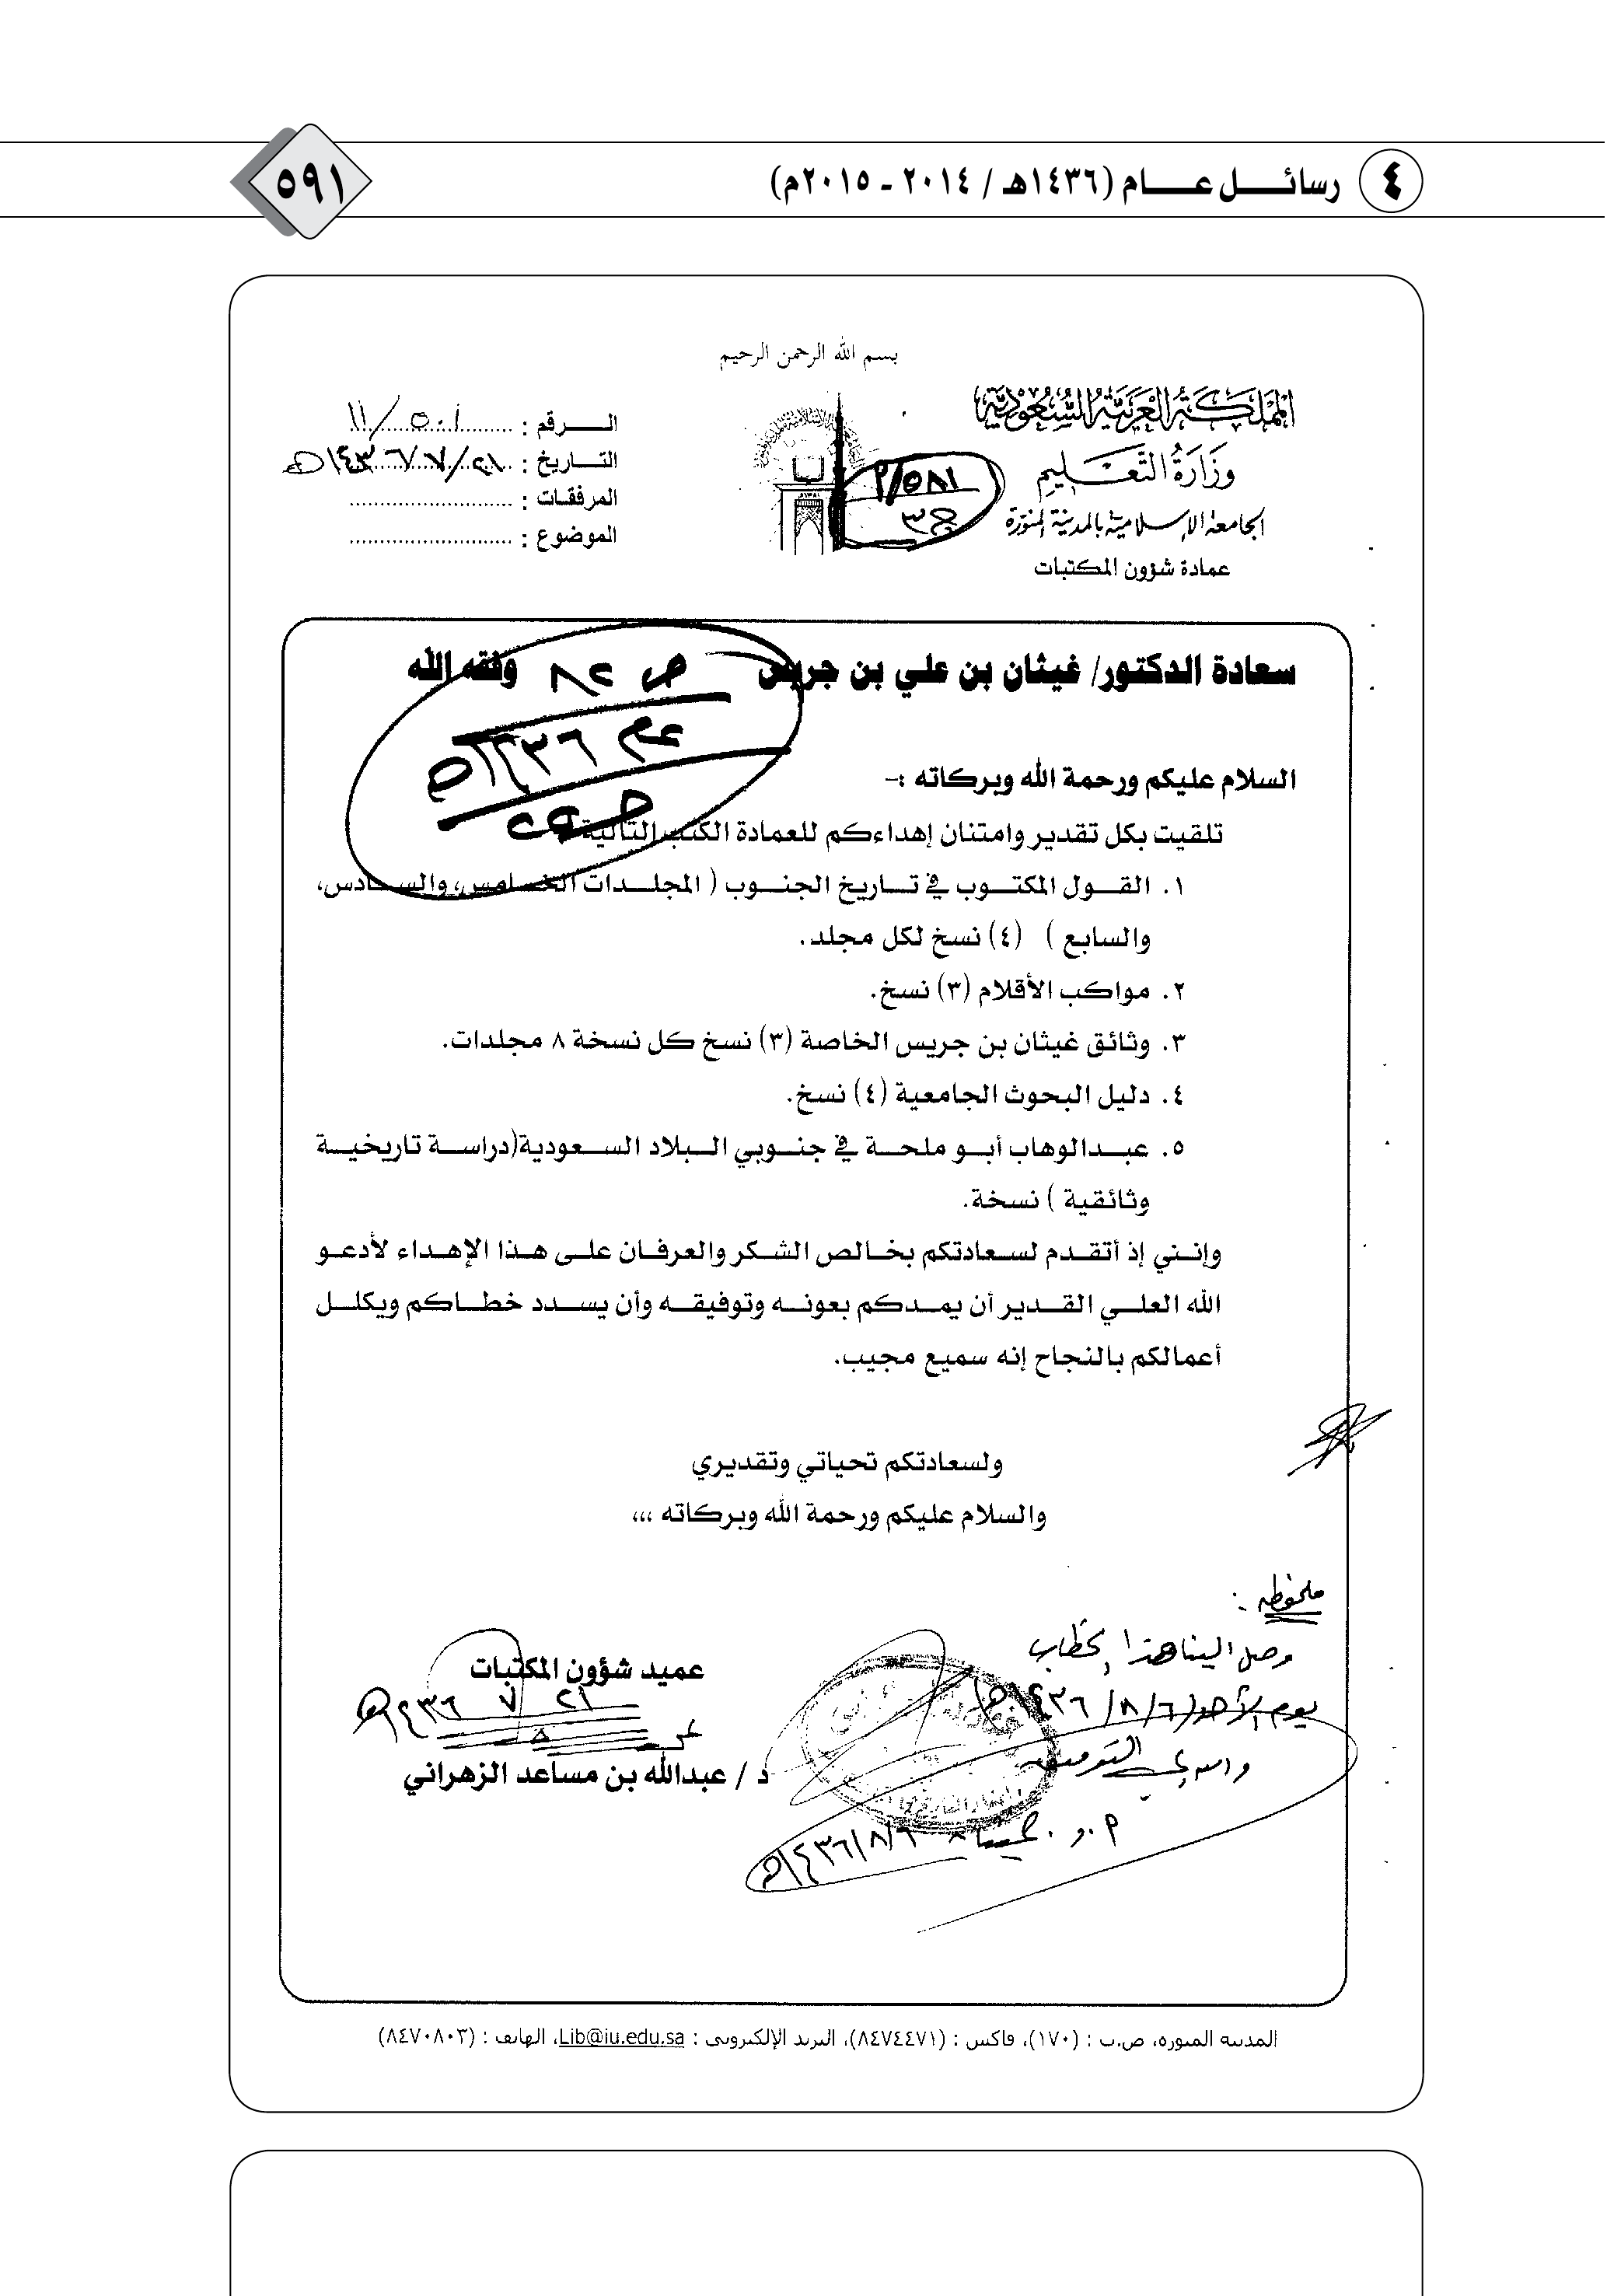 ٤ رسائل عام (١٤٣٦هـ / ٢٠١٤ - ٢٠١٥م)
٥٩١
بسم الله الرحمن الرحيم
المملكة العربية السعودية
وزارة التعليم
الجامعة الإسلامية بالمدينة المنورة
عمادة شؤون المكتبات
الرقم :
التاريخ : ٢١/٧/١٤٣٦هـ
المرفقات :
الموضوع :
سعادة الدكتور/ غيثان بن علي بن جريس وفقه الله
ص ٨٢
عام ١٤٣٦هـ
السلام عليكم ورحمة الله وبركاته :-
تلقيت بكل تقدير وامتنان إهداءكم للعمادة الكتب التالية
١. القول المكتوب في تاريخ الجنوب ( المجلدات الخامس، والسادس،
والسابع ) (٤) نسخ لكل مجلد.
٢. مواكب الأقلام (٣) نسخ.
٣. وثائق غيثان بن جريس الخاصة (٣) نسخ كل نسخة ٨ مجلدات.
٤. دليل البحوث الجامعية (٤) نسخ.
٥. عبدالوهاب أبو ملحة في جنوبي البلاد السعودية(دراسة تاريخية
وثائقية ) نسخة.
وإنني إذ أتقدم لسعادتكم بخالص الشكر والعرفان على هذا الإهداء لأدعو
الله العلي القدير أن يمدكم بعونه وتوفيقه وأن يسدد خطاكم ويكلل
أعمالكم بالنجاح إنه سميع مجيب.
ولسعادتكم تحياتي وتقديري
والسلام عليكم ورحمة الله وبركاته ،،،
ملحوظه :
وصل الينا هذا الخطاب
يوم الأحد (٦/٨/١٤٣٦هـ)
والله ولي التوفيق
١٤٣٦/٨/٦هـ
عميد شؤون المكتبات
٢١ ٧ ١٤٣٦هـ
د / عبدالله بن مساعد الزهراني
المدينة المنورة، ص.ب : (١٧٠)، فاكس : (٨٤٧٤٤٧١)، البريد الإلكتروني : Lib@iu.edu.sa، الهاتف : (٨٤٧٠٨٠٣)